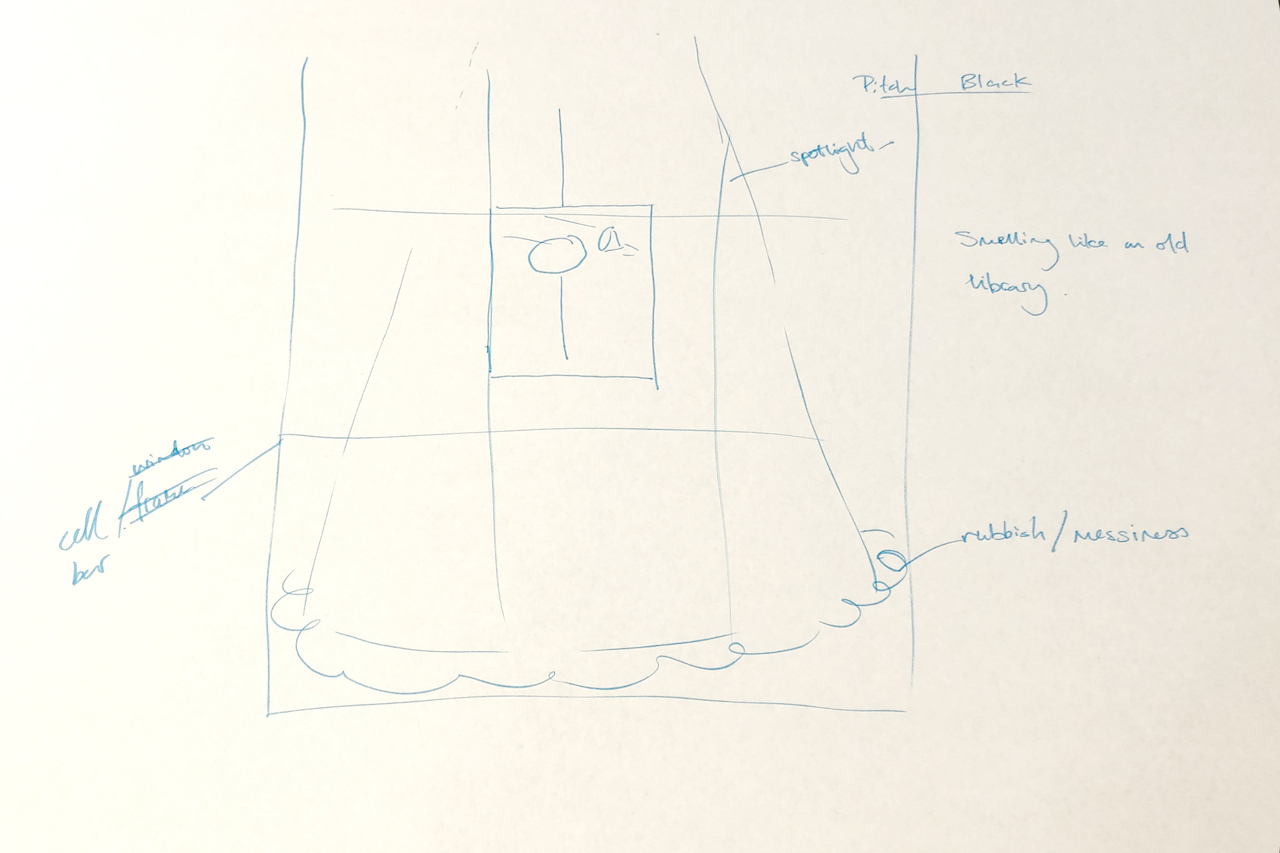 Pitch Black
spotlight
Smelling like an old
library.
window
cell / frame
bar
rubbish / messiness